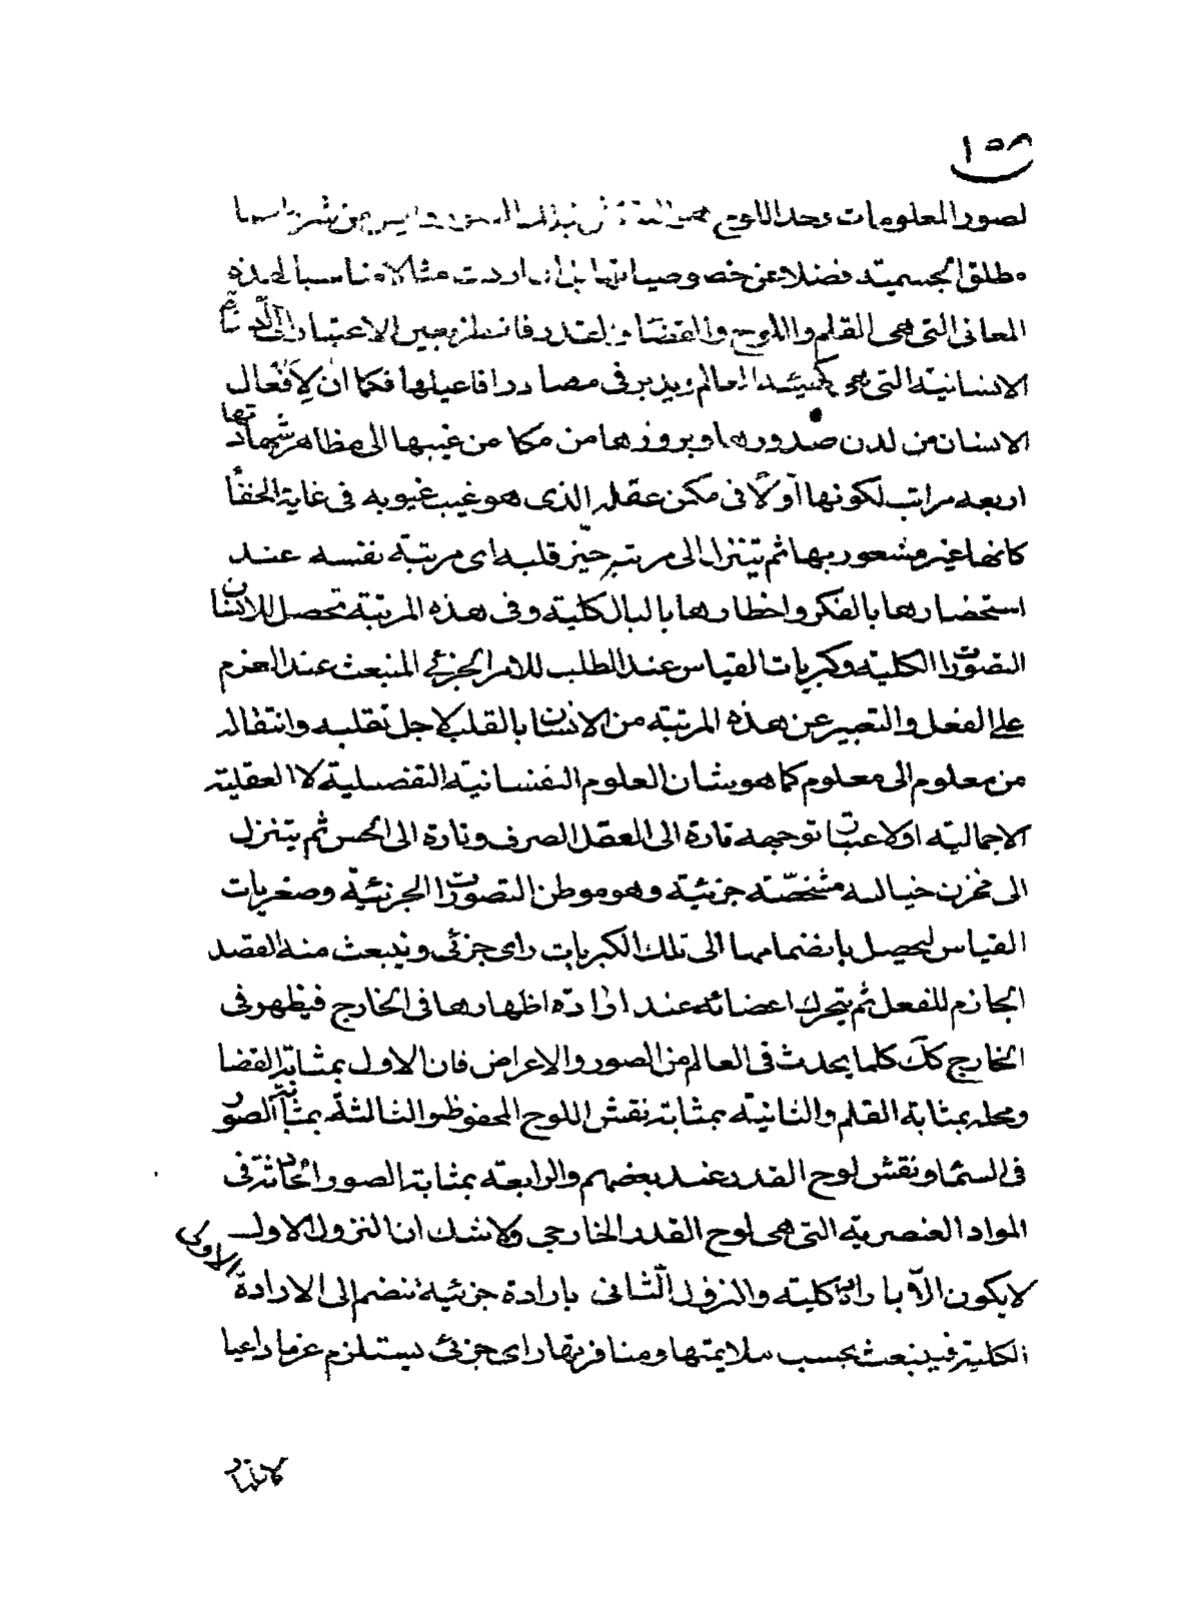 ١٥٨
لصور المعلومات وحد اللوح
مطلق الجسمية فضلا عن خصوصياتها فان اردت مثالا مناسبا لهذه
المعانى التى هى القلم واللوح والقضا والقدر فانظر بعين الاعتبار الى
الانسانية التى هى العالم وتدبر فى مصادر افاعيلها فكما ان لافعال
الانسان من لدن صدورها وبروزها من مكامن غيبها الى مظاهر شهادتها
اربعه مراتب لكونها اولا فى مكمن عقله الذى هو غيب غيوبه فى غاية الخفأ
كانها غير مشعور بها ثم يتنزل الى مرتبه حيّز قلبه اى مرتبة نفسه عند
استحضارها بالفكر واخطارها بالبال كلية وفى هذه المرتبة تحصل للانسان
التصورات الكلية وكبريات القياس عند الطلب للامر الجزئى المنبعث عند العزم
على الفعل والتعبير عن هذه المرتبة من الانسان بالقلب لاجل تقلبه وانتقاله
من معلوم الى معلوم كما هو شان العلوم النفسانية التفصيلية لا العقلية
الاجمالية او لاعتبار توجهه تارة الى العقل الصرف وتارة الى الحس ثم يتنزل
الى مخزن خياله مشخصّة جزئية وهو موطن التصورات الجزئيّة وصغريات
القياس ليحصل بانضمامها الى تلك الكبريات راى جزئى وينبعث منه القصد
الجازم للفعل ثم يتحرك اعضائه عند ارادة اظهارها فى الخارج فيظهر فى
الخارج كك كلما يحدث فى العالم من الصور والاعراض فان الاول بمثابة القضا
ومحله بمثابة القلم والثانية بمثابة نقش اللوح المحفوظ والثالثة بمثابة الصور
فى السماء ونقش لوح القدر عند بعضهم والرابعة بمثابة الصور الحادثة فى
المواد العنصرية التى هى لوح القدر الخارجى ولا شك ان النزول الاول
لا يكون الّا بارادة كلية والنزول الثانى بارادة جزئية تنضم الى الارادة الاولى
الكلية فينبعث بحسب ملايمتها ومنافرتها راى جزئى يستلزم عزما داعيا